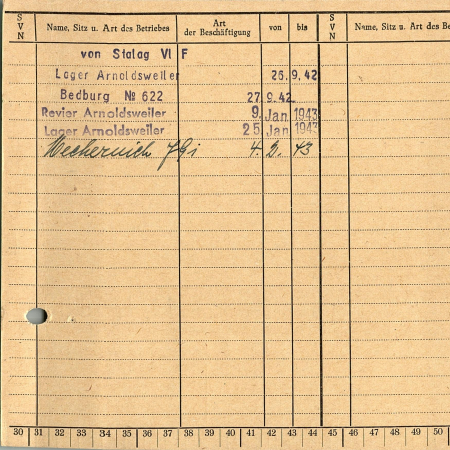 S V N Name, Sitz u. Art des Betriebes Art der Beschäftigung von bis S V N Name, Sitz u. Art des Be
von Stalag VI F
Lager Arnoldsweiler 26.9.42
Bedburg № 622 27.9.42.
Revier Arnoldsweiler 9. Jan. 1943
Lager Arnoldsweiler 25. Jan 1943
Mechernich 4. 2. 43
30 31 32 33 34 35 36 37 38 39 40 41 42 43 44 45 46 47 48 49 50